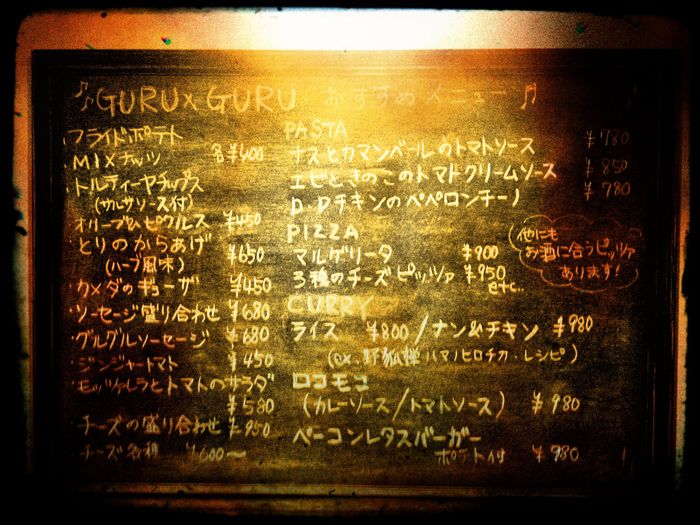 ♪GURU×GURU おすすめメニュー♪
フライドポテト
MIXナッツ 各¥400
トルティーヤチップス
(サルサソース付)
オリーブ&ピクルス ¥450
とりのからあげ
(ハーブ風味) ¥650
のギョーザ ¥450
ソーセージ盛り合わせ ¥680
グルグルソーセージ ¥680
ジンジャートマト ¥450
モッツァレラとトマトのサラダ
¥580
チーズの盛り合わせ ¥950
チーズ各種 ¥600〜
PASTA
ナスとカマンベールのトマトソース ¥780
エビときのこのトマトクリームソース ¥850
P.Pチキンのペペロンチーノ ¥780
PIZZA
マルゲリータ ¥900
3種のチーズピッツァ ¥950
etc..
他にも
お酒に合うピッツァ
あります!
CURRY
ライス ¥800/ナン&チキン ¥980
(ex.野狐禅ハマノヒロチカ・レシピ)
ロコモコ
(カレーソース/トマトソース) ¥980
ベーコンレタスバーガー
ポテト付 ¥980